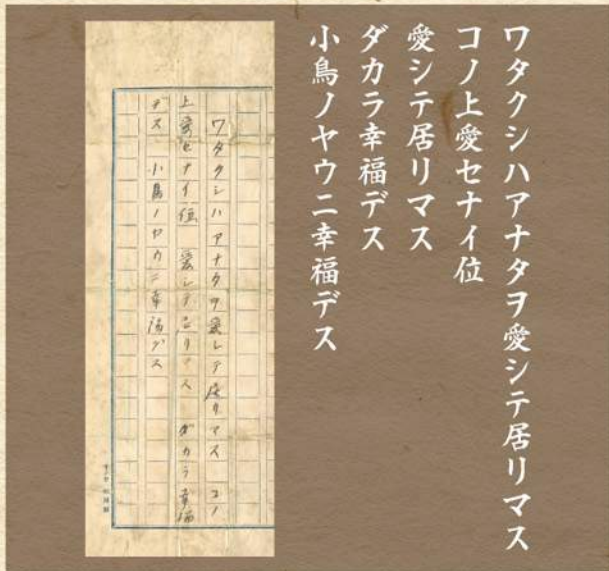 ワタクシハアナタヲ愛シテ居リマス
コノ上愛セナイ位
愛シテ居リマス
ダカラ幸福デス
小鳥ノヤウニ幸福デス
ワタクシハアナタヲ愛シテ居リマス コノ
上愛セナイ位 愛シテ居リマス ダカラ幸福
デス 小鳥ノヤウニ幸福デス